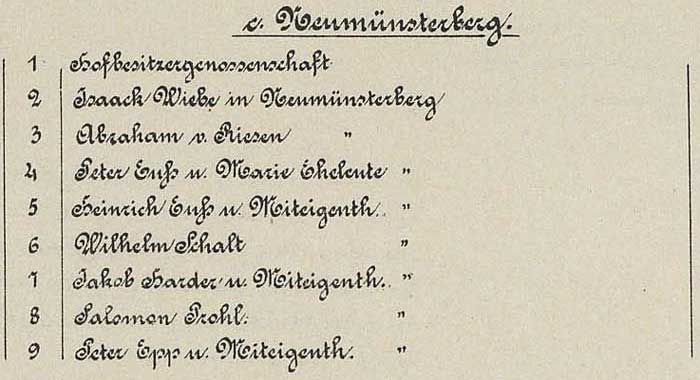 c. Neumünsterberg.
1 Hofbesitzergenossenschaft
2 Isaack Wiebe in Neumünsterberg
3 Abraham v. Riesen "
4 Peter Enß u. Marie Eheleute "
5 Heinrich Enß u. Miteigenth. "
6 Wilhelm Schalt "
7 Jakob Harder u. Miteigenth. "
8 Salomon Prohl. "
9 Peter Epp u. Miteigenth. "